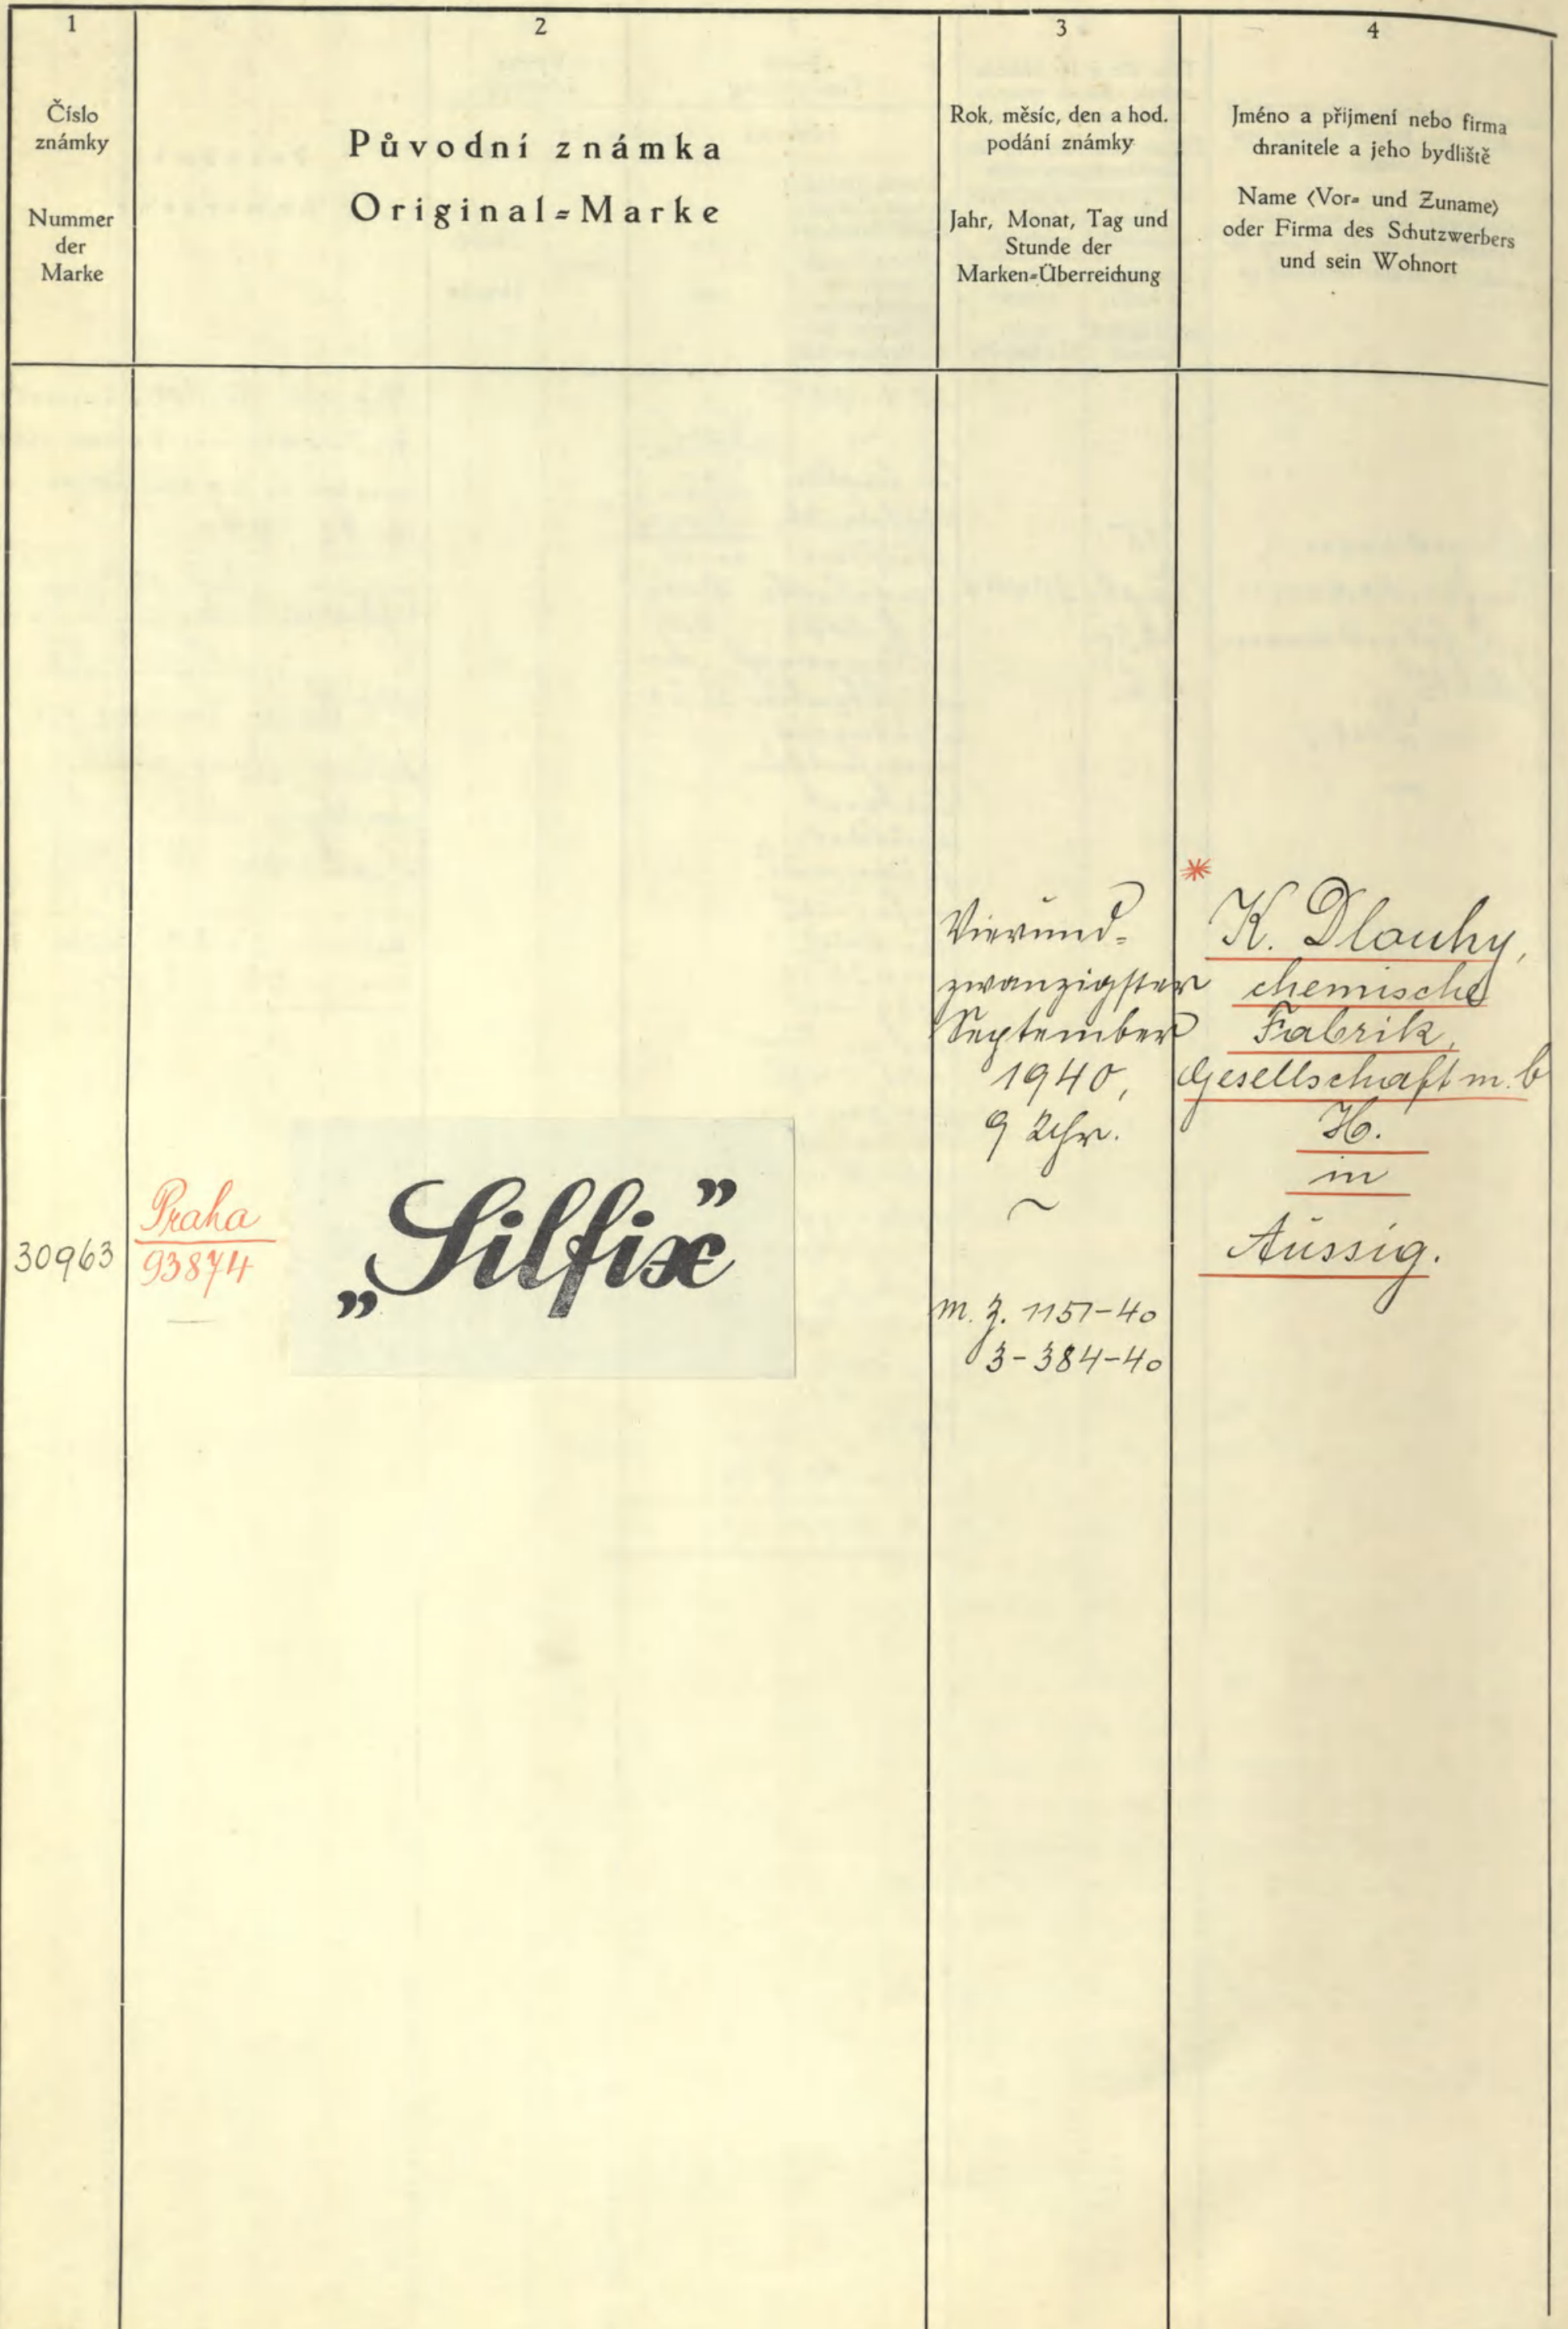 1
Číslo
známky
Nummer
der
Marke
2
Původní známka
Original=Marke
3
Rok, měsíc, den a hod.
podání známky
Jahr, Monat, Tag und
Stunde der
Marken=Überreichung
4
Jméno a přijmení nebo firma
chranitele a jeho bydliště
Name (Vor= und Zuname)
oder Firma des Schutzwerbers
und sein Wohnort
30963
Praha
93874
„Silfix”
Vierund=
zwanzigster
September
1940,
9 Uhr.
~
m. z. 1151-40
3-384-40
*
K. Dlouhy,
chemische
Fabrik,
Gesellschaft m. b
H.
in
Aussig.